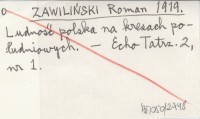 ZAWILIŃSKI Roman 1919.
Ludność polska na kresach po-
łudniowych. – Echo Tatrz. 2,
nr 1.